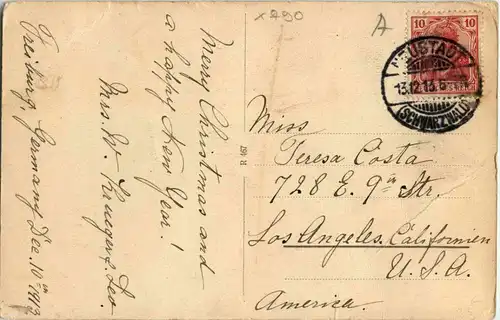 Merry Christmas and
a happy New Year!
Mrs. W. Kruger & Leo.
Freiburg, Germany, Dec. 10th 1913
x290
A
10 10
NEUSTADT
13.12.13.
(SCHWARZWALD)
Miss
Teresa Costa
728 E. 9th Str.
Los Angeles, Californien
U.S.A.
America.